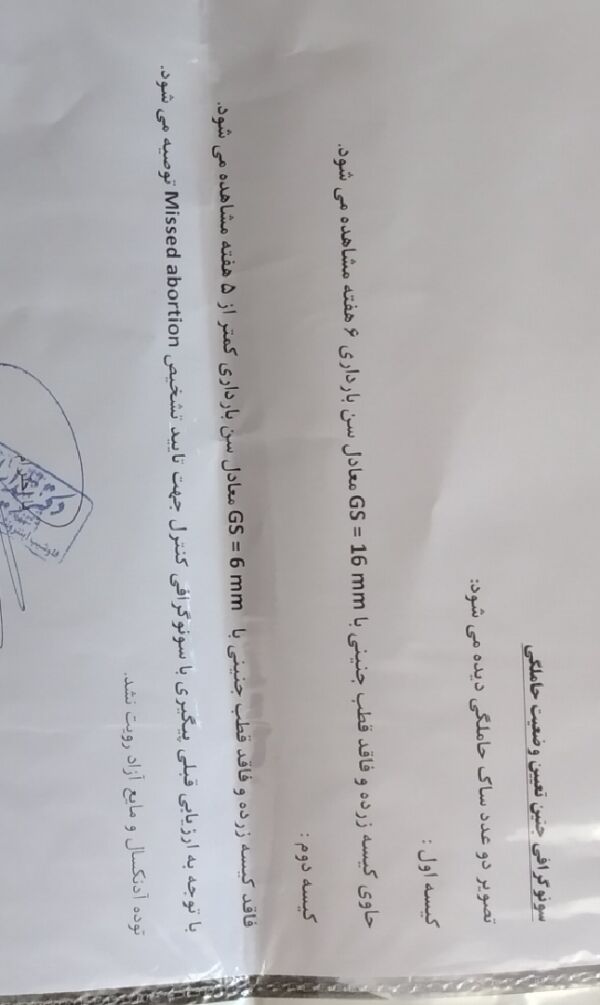 سونوگرافی جنین تعیین وضعیت حاملگی
تصویر دو عدد ساک حاملگی دیده می شود:
کیسه اول :
حاوی کیسه زرده و فاقد قطب جنینی با GS = 16 mm معادل سن بارداری ۶ هفته مشاهده می شود.
کیسه دوم :
فاقد کیسه زرده و فاقد قطب جنینی با GS = 6 mm معادل سن بارداری کمتر از ۵ هفته مشاهده می شود.
با توجه به ارزیابی قبلی پیگیری با سونوگرافی کنترل جهت تایید تشخیص Missed abortion توصیه می شود.
توده آدنکسال و مایع آزاد رویت نشد.